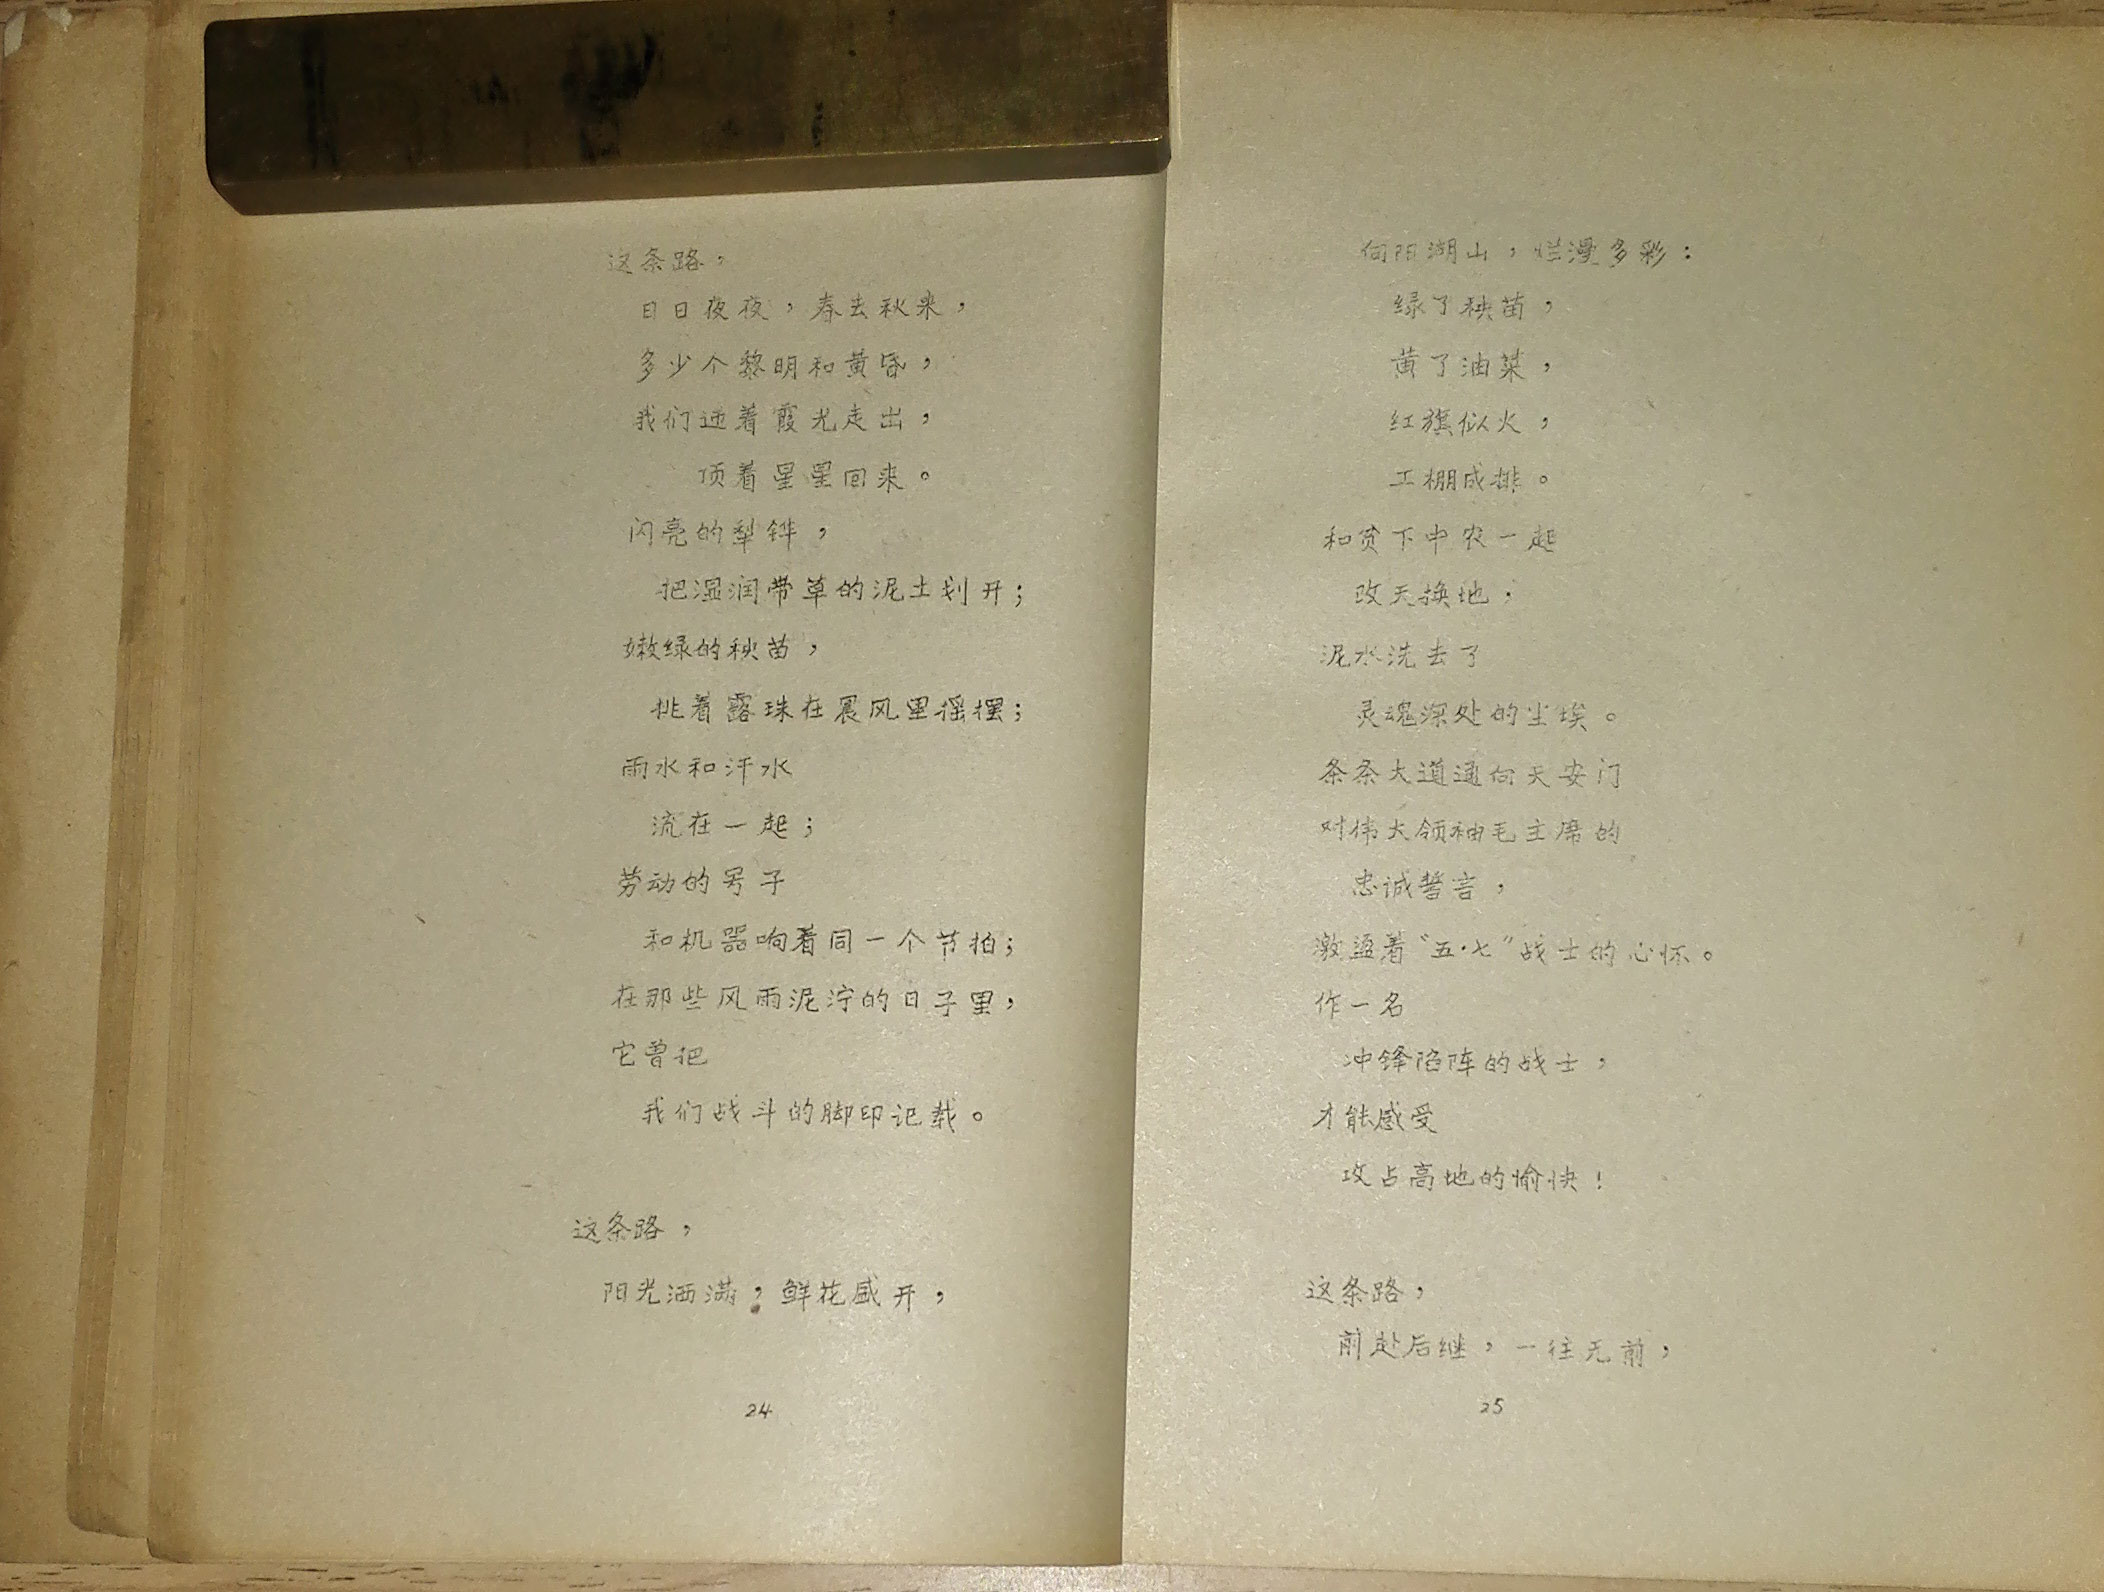 这条路，
日日夜夜，春去秋来，
多少个黎明和黄昏，
我们迎着霞光走出，
顶着星星回来。
闪亮的犁铧，
把湿润带草的泥土划开；
嫩绿的秧苗，
挑着露珠在晨风里摇摆；
雨水和汗水
流在一起；
劳动的号子
和机器响着同一个节拍；
在那些风雨泥泞的日子里，
它曾把
我们战斗的脚印记载。
这条路，
阳光洒满，鲜花盛开，
24
向阳湖山，烂漫多彩：
绿了秧苗，
黄了油菜，
红旗似火，
工棚成排。
和贫下中农一起
改天换地，
泥水洗去了
灵魂深处的尘埃。
条条大道通向天安门
对伟大领袖毛主席的
忠诚誓言，
激盪着“五·七”战士的心怀。
作一名
冲锋陷阵的战士，
才能感受
攻占高地的愉快！
这条路，
前赴后继，一往无前，
25